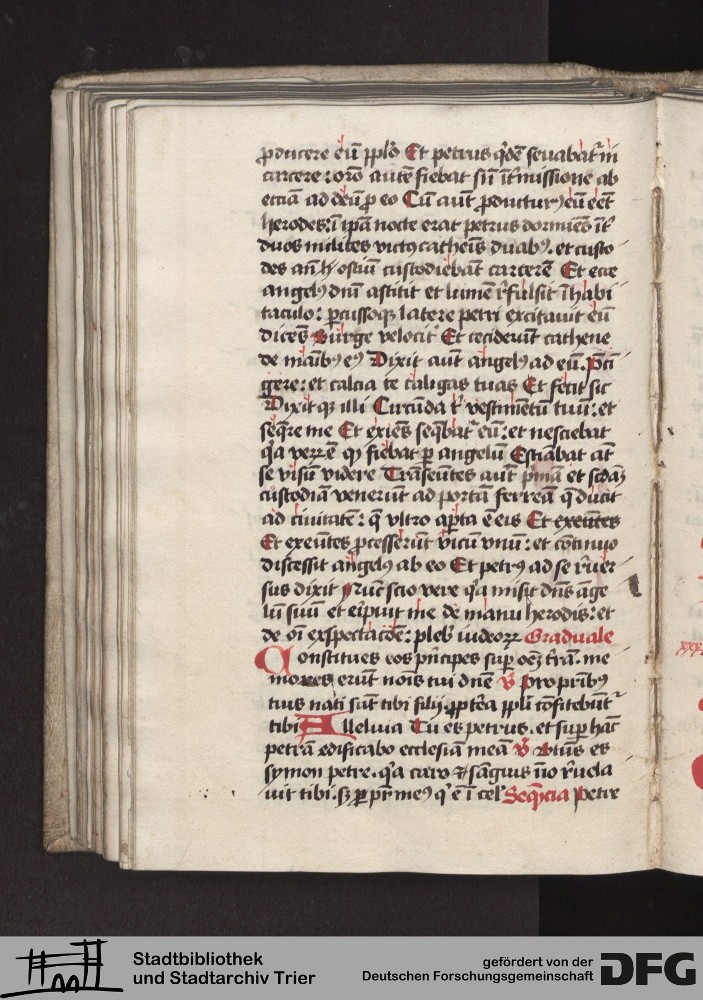 ꝓducere eū pplo Et petrus qdē seruabat in
carcere : oro autē fiebat sn̄ ītmissione ab
eccia ad deū ꝓ eo Cū aut ꝓducturꝰ eū eēt
herodes : ī ipā nocte erat petrus dormiēs īt
duos milites victꝰ cathenis duabꝰ . et custo
des an̄ hostiū custodiebāt carcerē Et ecce
angelꝰ dnī astitit et lumē rfulsit ī habi
taculo : ꝑcussoqꝫ latere petri excitauit eū
dicēs Surge velocit Et ceciderūt cathene
de manibꝰ eꝰ Dixit aut angelꝰ ad eū . Pci
gere : et calcia te caligas tuas Et fecit sic
Dixitqꝫ illi Circūda t vestimētū tuū : et
seqre me Et exiēs seqbat eū : et nesciebat
qa verū ē qꝫ fiebat ꝑ angelū Estiabat at
se visū videre Trāseūtes aut pmā et scdaꝫ
custodiā venerūt ad portā ferreā q ducit
ad ciuitatē : q vltro aꝑta ē eis Et exeūtes
Et exeūtes ꝓcesserūt vicū vnū : et cōtinuo
discessit angelꝰ ab eo Et petrꝰ ad se rūer
sus dixit Nūc scio vere qa misit dn̄s āge
lū suū et eripuit me de manu herodis : et
de oī exspectacōe : plebꝭ iudeoꝝ Graduale
Constitues eos pncipes suꝑ oēꝫ trā . me
mores erūt nois tui dnē ꝟ Pro pribꝰ
tuis nati sūt tibi filij . ꝓptea ppli cōfitebūt
tibi Alleluia Tu es petrus . et suꝑ hāc
petrā edificabo ecclesiā meā ꝟ Btūs es
symon petre . qa caro et sāgius nō rūela
uit tibi . sꝫ pr meꝰ q ē ī cel Seqꝫcia Petre
Stadtbibliothek
und Stadtarchiv Trier
gefördert von der
Deutschen Forschungsgemeinschaft
DFG